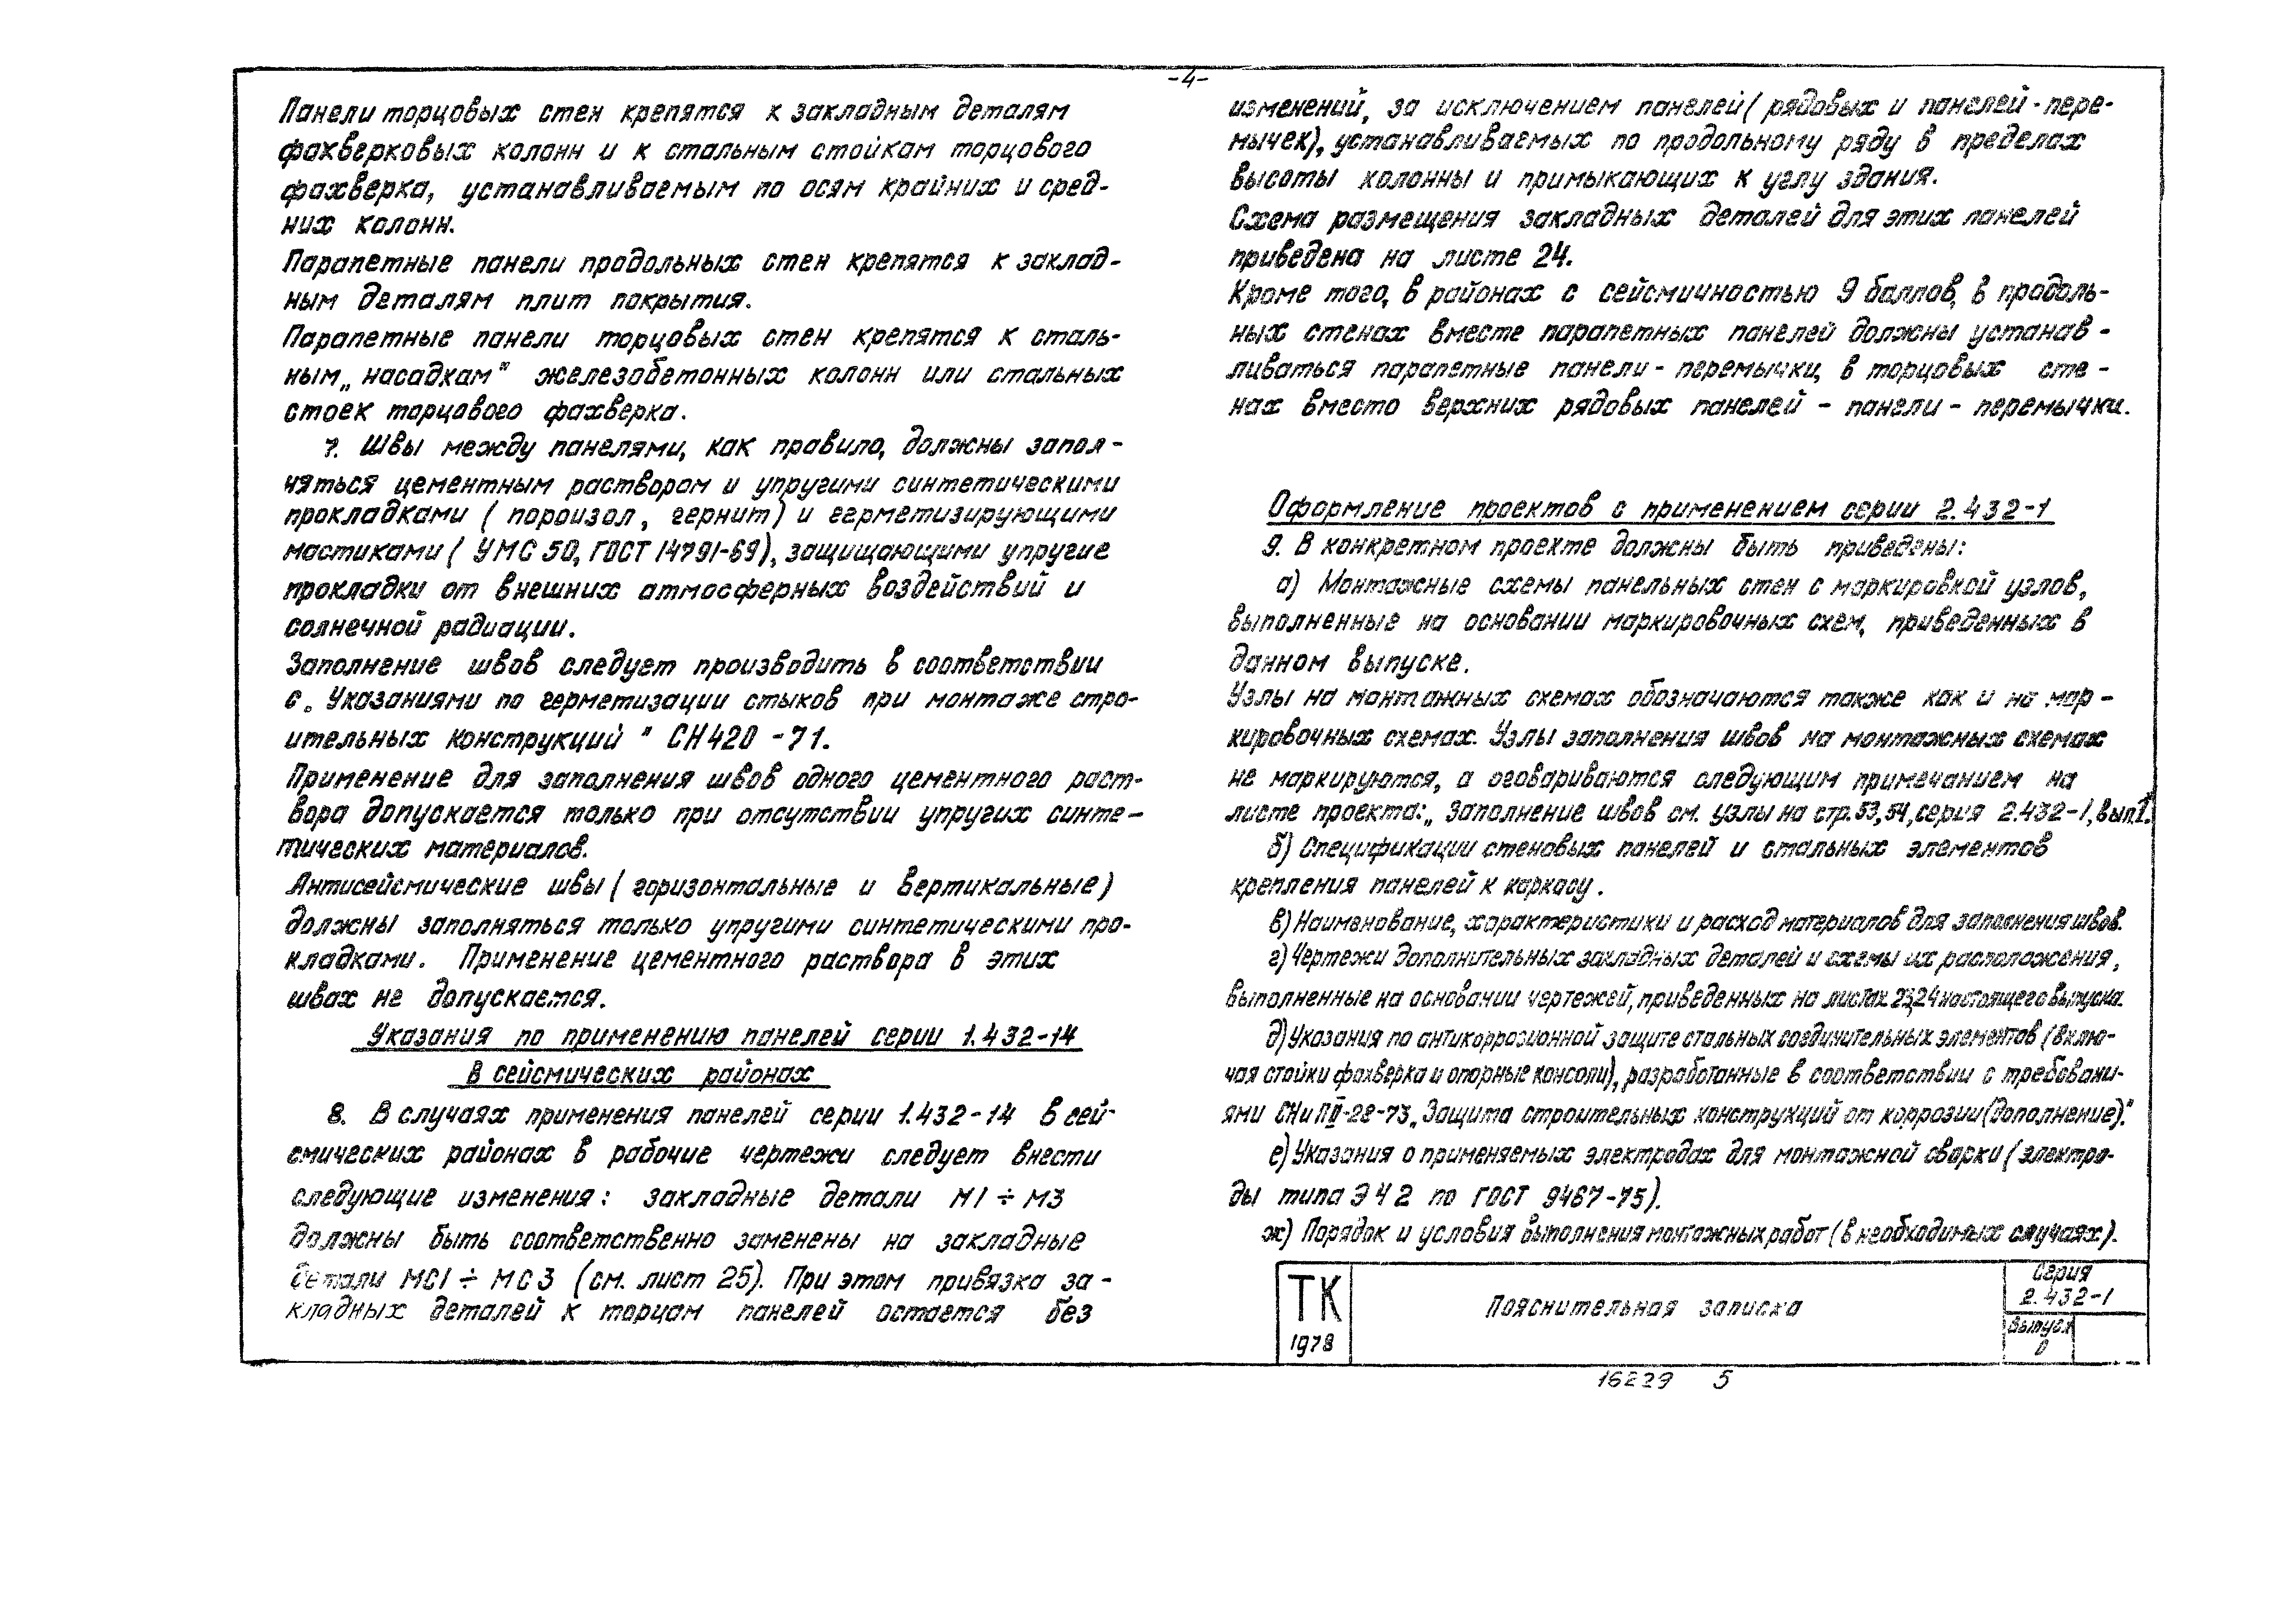 -4-
Панели торцовых стен крепятся к закладным деталям
фахверковых колонн и к стальным стойкам торцового
фахверка, устанавливаемым по осям крайних и сред-
них колонн.
Парапетные панели продольных стен крепятся к заклад-
ным деталям плит покрытия.
Парапетные панели торцовых стен крепятся к сталь-
ным „насадкам" железобетонных колонн или стальных
стоек торцового фахверка.
7. Швы между панелями, как правило, должны запол-
няться цементным раствором и упругими синтетическими
прокладками (пороизол, гернит) и герметизирующими
мастиками (УМС 50, ГОСТ 14791-69), защищающими упругие
прокладки от внешних атмосферных воздействий и
солнечной радиации.
Заполнение швов следует производить в соответствии
с „Указаниями по герметизации стыков при монтаже стро-
ительных конструкций" СН420-71.
Применение для заполнения швов одного цементного раст-
вора допускается только при отсутствии упругих синте-
тических материалов.
Антисейсмические швы (горизонтальные и вертикальные)
должны заполняться только упругими синтетическими про-
кладками. Применение цементного раствора в этих
швах не допускается.
Указания по применению панелей серии 1.432-14
в сейсмических районах
8. В случаях применения панелей серии 1.432-14 в сей-
смических районах в рабочие чертежи следует внести
следующие изменения: закладные детали М1÷М3
должны быть соответственно заменены на закладные
детали МС1÷МС3 (см. лист 25). При этом привязка за-
кладных деталей к торцам панелей остается без
изменений, за исключением панелей (рядовых и панелей-пере-
мычек), устанавливаемых по продольному ряду в пределах
высоты колонны и примыкающих к углу здания.
Схема размещения закладных деталей для этих панелей
приведена на листе 24.
Кроме того, в районах с сейсмичностью 9 баллов, в продоль-
ных стенах вместе парапетных панелей должны устанав-
ливаться парапетные панели-перемычки, в торцовых сте-
нах вместо верхних рядовых панелей - панели-перемычки.
Оформление проектов с применением серии 2.432-1
9. В конкретном проекте должны быть приведены:
а) Монтажные схемы панельных стен с маркировкой узлов,
выполненные на основании маркировочных схем, приведенных в
данном выпуске.
Узлы на монтажных схемах обозначаются также как и на мар-
кировочных схемах. Узлы заполнения швов на монтажных схемах
не маркируются, а оговариваются следующим примечанием на
листе проекта: „Заполнение швов см. узлы на стр.53,54, серия 2.432-1, вып.1."
б) Спецификации стеновых панелей и стальных элементов
крепления панелей к каркасу.
в) Наименование, характеристики и расход материалов для заполнения швов.
г) Чертежи дополнительных закладных деталей и схемы их расположения,
выполненные на основании чертежей, приведенных на листах 23,24 настоящего выпуска.
д) Указания по антикоррозионной защите стальных соединительных элементов (вклю-
чая стойки фахверка и опорные консоли), разработанные в соответствии с требовани-
ями СНиП II-28-73 „Защита строительных конструкций от коррозии (дополнение)."
е) Указания о применяемых электродах для монтажной сварки (электро-
ды типа Э42 по ГОСТ 9467-75).
ж) Порядок и условия выполнения монтажных работ (в необходимых случаях).
ТК
1978
Пояснительная записка
Серия
2.432-1
Выпуск
0
16229 5